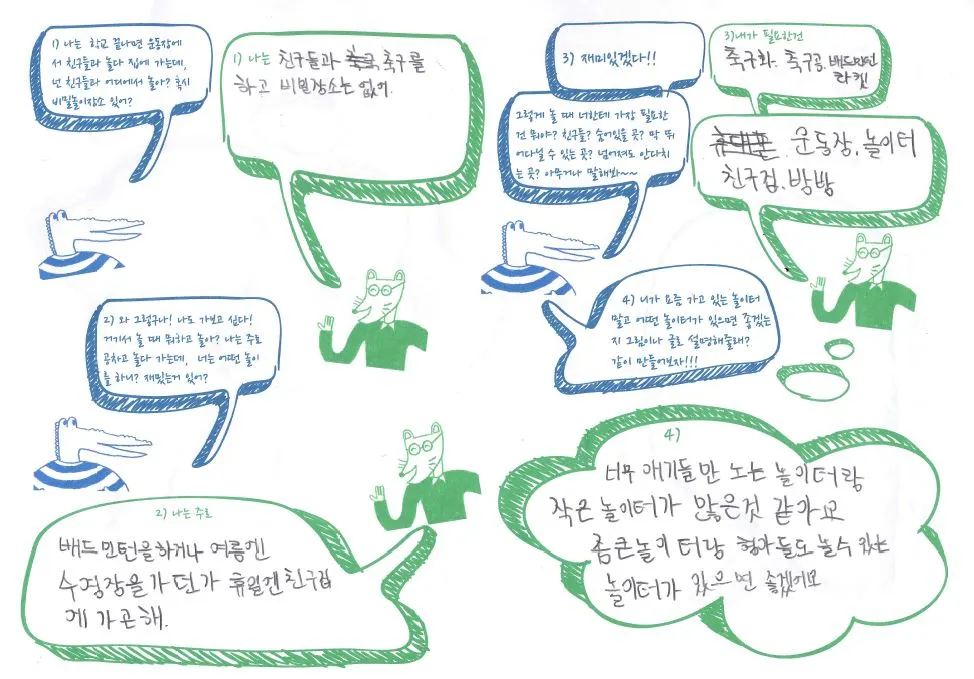 1) 나는 학교 끝나면 운동장에
서 친구들과 놀다 집에 가는데,
넌 친구들과 어디에서 놀아? 혹시
비밀놀이장소 있어?
1) 나는 친구들과 축구를
하고 비밀장소는 없어.
2) 와 그렇구나! 나도 가보고 싶다!
거기서 놀 때 뭐하고 놀아? 나는 주로
공차고 놀다 가는데, 너는 어떤 놀이
를 하니? 재밌는거 있어?
2) 나는 주로
배드민턴을하거나 여름엔
수영장을가던가 휴일엔친구집
에 가곤해.
3) 재미있겠다!!
그렇게 놀 때 너한테 가장 필요한
건 뭐야? 친구들? 숨어있을 곳? 막 뛰
어다닐 수 있는 곳? 넘어져도 안다치
는 곳? 아무거나 말해봐~~
3)내가 필요한건
축구화. 축구공. 배드민턴
라켓
휴대폰 운동장, 놀이터
친구집, 방방
4) 네가 요즘 가고 있는 놀이터
말고 어떤 놀이터가 있으면 좋겠는
지 그림이나 글로 설명해줄래?
같이 만들어보자!!!
4)
너무 애기들만 노는 놀이터랑
작은 놀이터가 많은것 같아요
좀큰놀이터랑 형아들도 놀수있는
놀이터가 있으면 좋겠어요